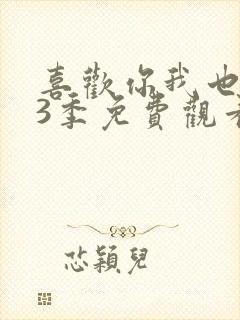 喜歡你我也
3季免費觀看
芯穎兒